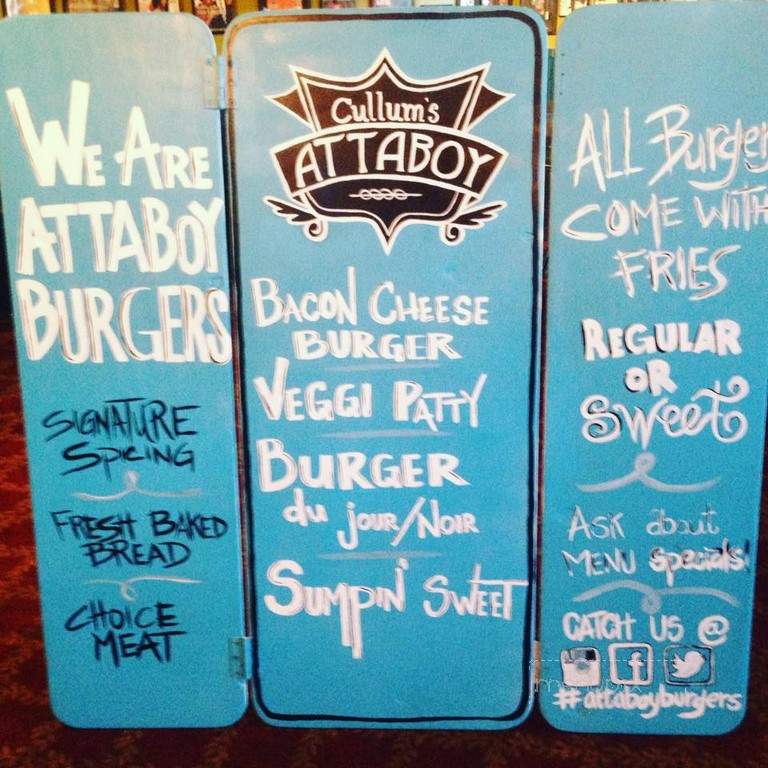 WE ARE
ATTABOY
BURGERS
SIGNATURE
SPICING
FRESH BAKED
BREAD
CHOICE
MEAT
Cullum's
ATTABOY
BACON CHEESE
BURGER
VEGGI PATTY
BURGER
du jour/Noir
SUMPIN' SWEET
ALL Burger
COME WITH
FRIES
REGULAR
OR
Sweet
ASK about
MENU specials!
CATCH US @
#attaboyburgers